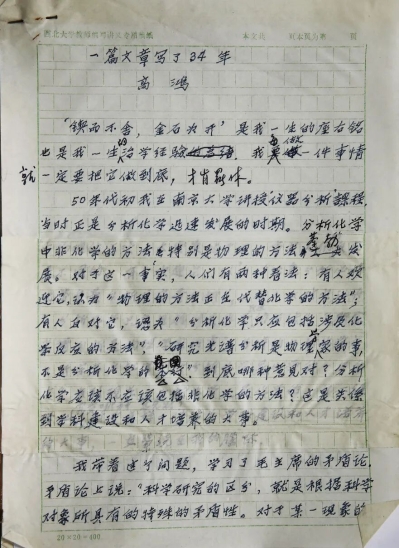 西北大学
一篇文章写了34年
高鸿
"锲而不舍,金石为开"是我一生的座右铭
也是我一生的治学经验,我每做一件事情
就一定要把它做到底,才肯罢休。
50年代初我在南京大学讲授"仪器分析"课程,
当时正是分析化学迅速发展的时期。分析化学
中非化学的方法特别是物理的方法蓬勃发
展。对于这一事实,人们有两种看法:有人欢
迎它,认为"物理的方法正在代替化学的方法";
有人反对它,认为"分析化学只应包括涉及化
学反应的方法","研究光谱分析是物理学家的事,
不是分析化学的范围"到底哪种意见对?分析
化学应该不应该包括非化学的方法?这是关系
到学科建设和人才培养的大事。
我带着这个问题,学习了毛主席的矛盾论,
矛盾论上说:"科学研究的区分,就是根据科学
对象所具有的特殊的矛盾性。对于某一现象的
20×20=400